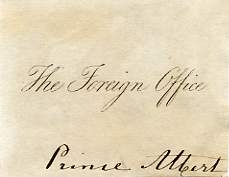 The Foreign Office
Prince Albert